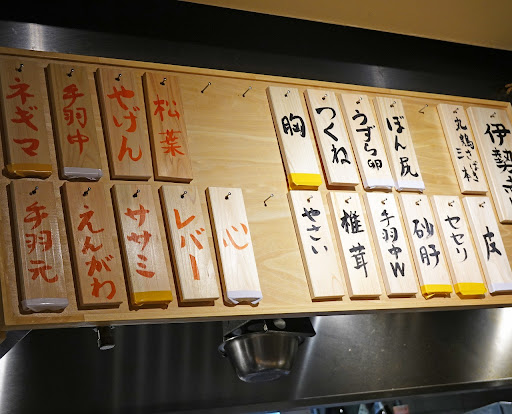 ネギマ
手羽中
やげん
松葉
胸
つくね
うずら卵
ぼん尻
丸鶏
伊勢
手羽元
えんがわ
ササミ
レバー
心
やさい
椎茸
手羽中W
砂肝
セセリ
皮